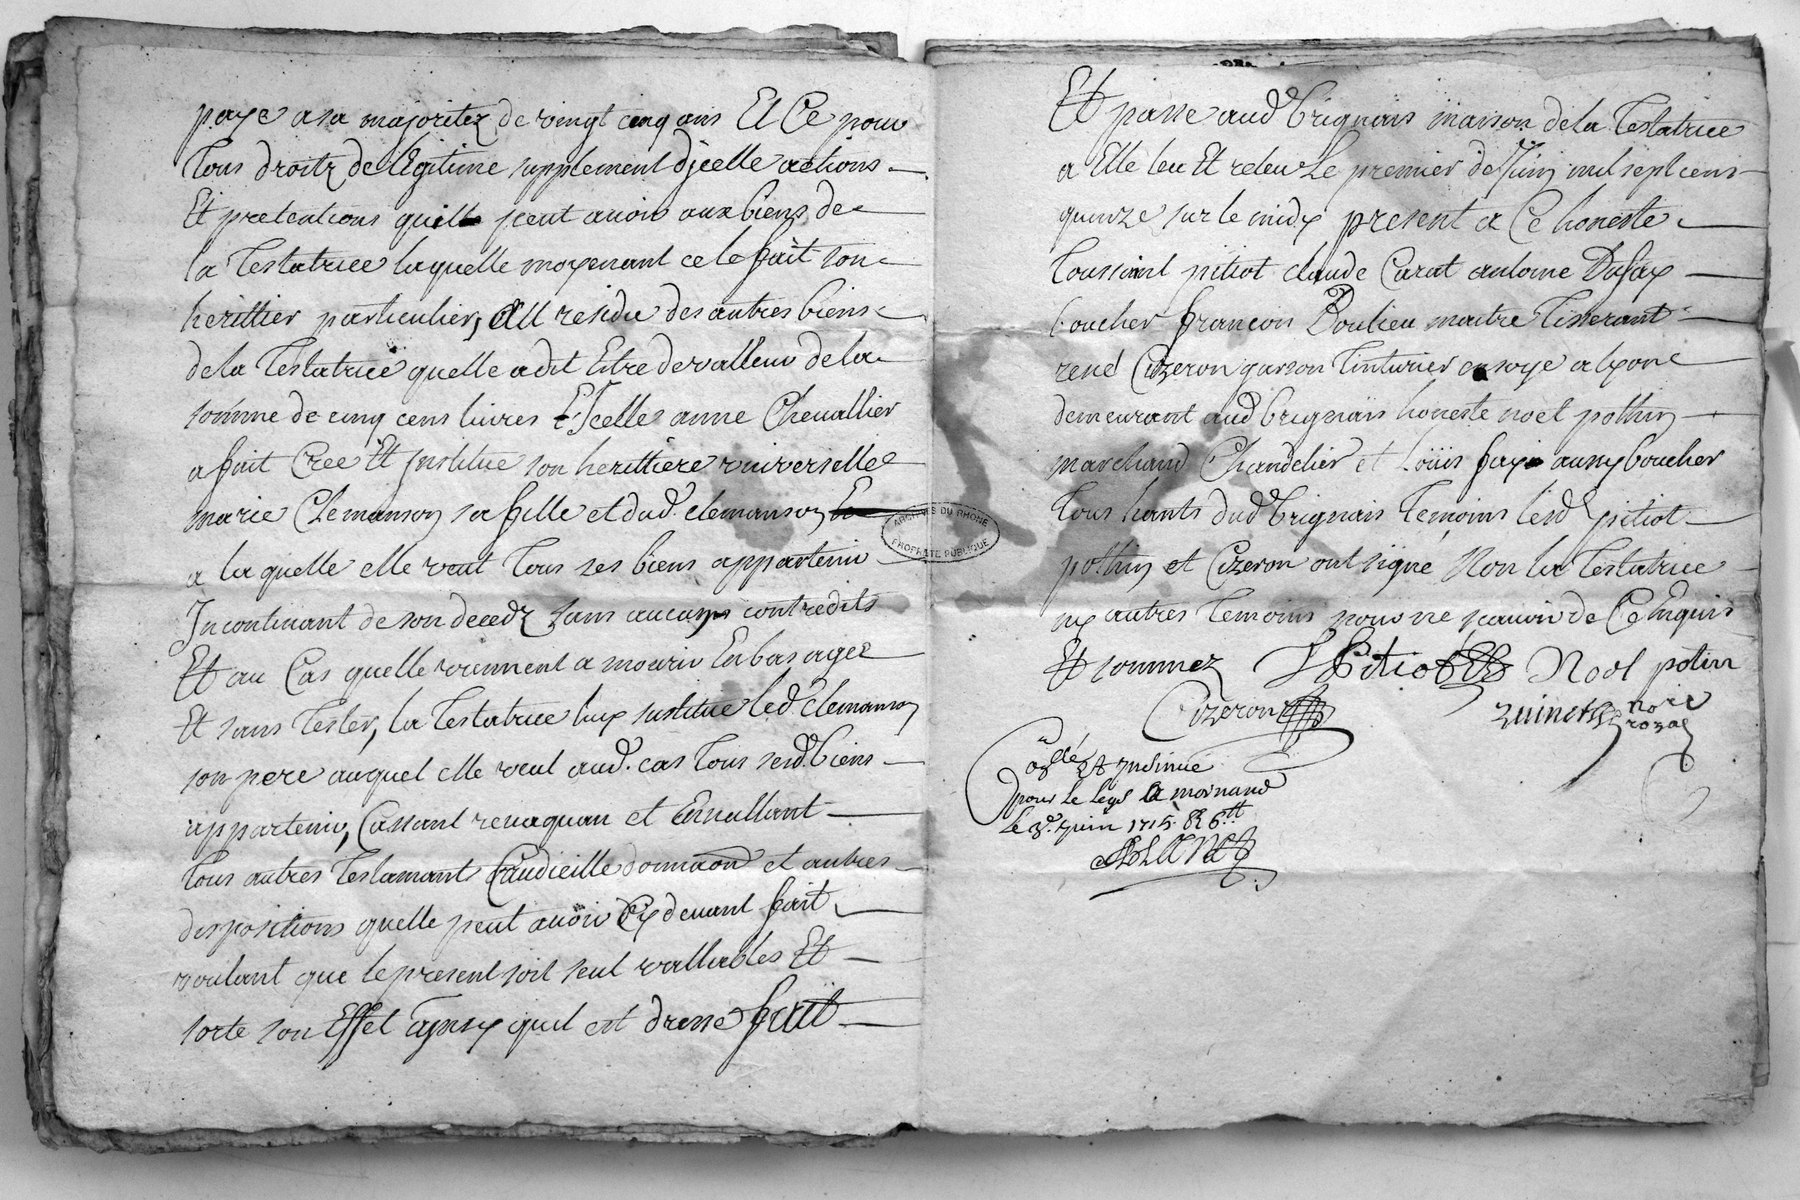 paye a sa majoritez de vingt cinq ans Et Ce pour
tous droitz de legitime supplement djcelle actions
Et pretentions quill peut avoir aux biens de
la Testatrice laquelle moyenant ce le fait son
herittier particulier, All residu des autres biens
de la Testatrice quelle a dit Estre de valleur de la
somme de cinq cens livres Jcelle anne Chevallier
a fait Cree Et Jnstitue son herittiere universelle
marie Clemanson sa fille et dud. clemanson,
a laquelle elle veut tous ses biens appartenir
Jncontinant de son decedz sans aucuns contredits
Et au Cas quelle viennent a mourir En bas agee
Et sans tester, la Testatrice luy Institue led. Clemanson
son pere auquel elle veut aud. cas tous sesd. biens
appartenir, Cassant revaquan et Ennullant
tous autres Testamant Caudicille donnaon et autres
dispositions quelle peut avoir Cy devant fait
voulant que le present soit seul vallables Et
sorte son Effet ainsy quil est dresse fait
Et passe aud brignais maison de la Testatrice
a Elle leu Et releu Le premier de Juin mil sept cens
quinze sur le midy present a Ce honeste
toussaint pitiot claude Carat antoine Dufay
boucher francois Doulieu maitre Tisserant
rene Cizeron garson tinturier en soye a lyon
demeurant aud brignais honeste noel pothin
marchand Chandelier et Loüis fay aussy boucher
tous hants dud brignais Temoins lesd pitiot
pothin et Cizeron ont signe Non la Testatrice
ny autres Temoins pour ne scavoir de Ce Enquis
Et sommez Pitiot Noel potin
Cizeron
nore
royal
Collé Et Jnsinue
pour le legs a moinand
Le 3e. Juin 1715. R 6tt
ARCHIVES DU RHONE
PROPRIETE PUBLIQUE